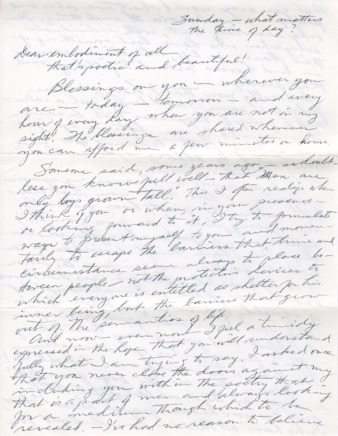 Sunday - what matters
the time of day?
Dear embodiment of all
that's poetic and beautiful!
Blessings on you - wherever you
are - today - tomorrow - and every
hour of every day when you are not in my
sight. The blessings are shared whenever
you can afford me a few minutes or hours.
Someone said, some years ago - as doubt-
less you know full well - that "Men are
only boys grown tall." This I often realize when
I think of you or when in your presence -
or looking forward to it. I try to formulate
ways to present myself to you and momen-
tarily to escape the barriers that time and
circumstance seem always to place be-
tween people - not the protective barriers to
which everyone is entitled as shelter for his
inner being, but the barriers that grow
out of the semantics of life.
And now - even now - I feel a timidity
expressed in the hope that you will understand
fully what I am trying to say. I asked once
that you never close the doors against my
including you within the poetry that
that is a part of me and always looking
for a medium through which to be
revealed. - I've had no reason to believe